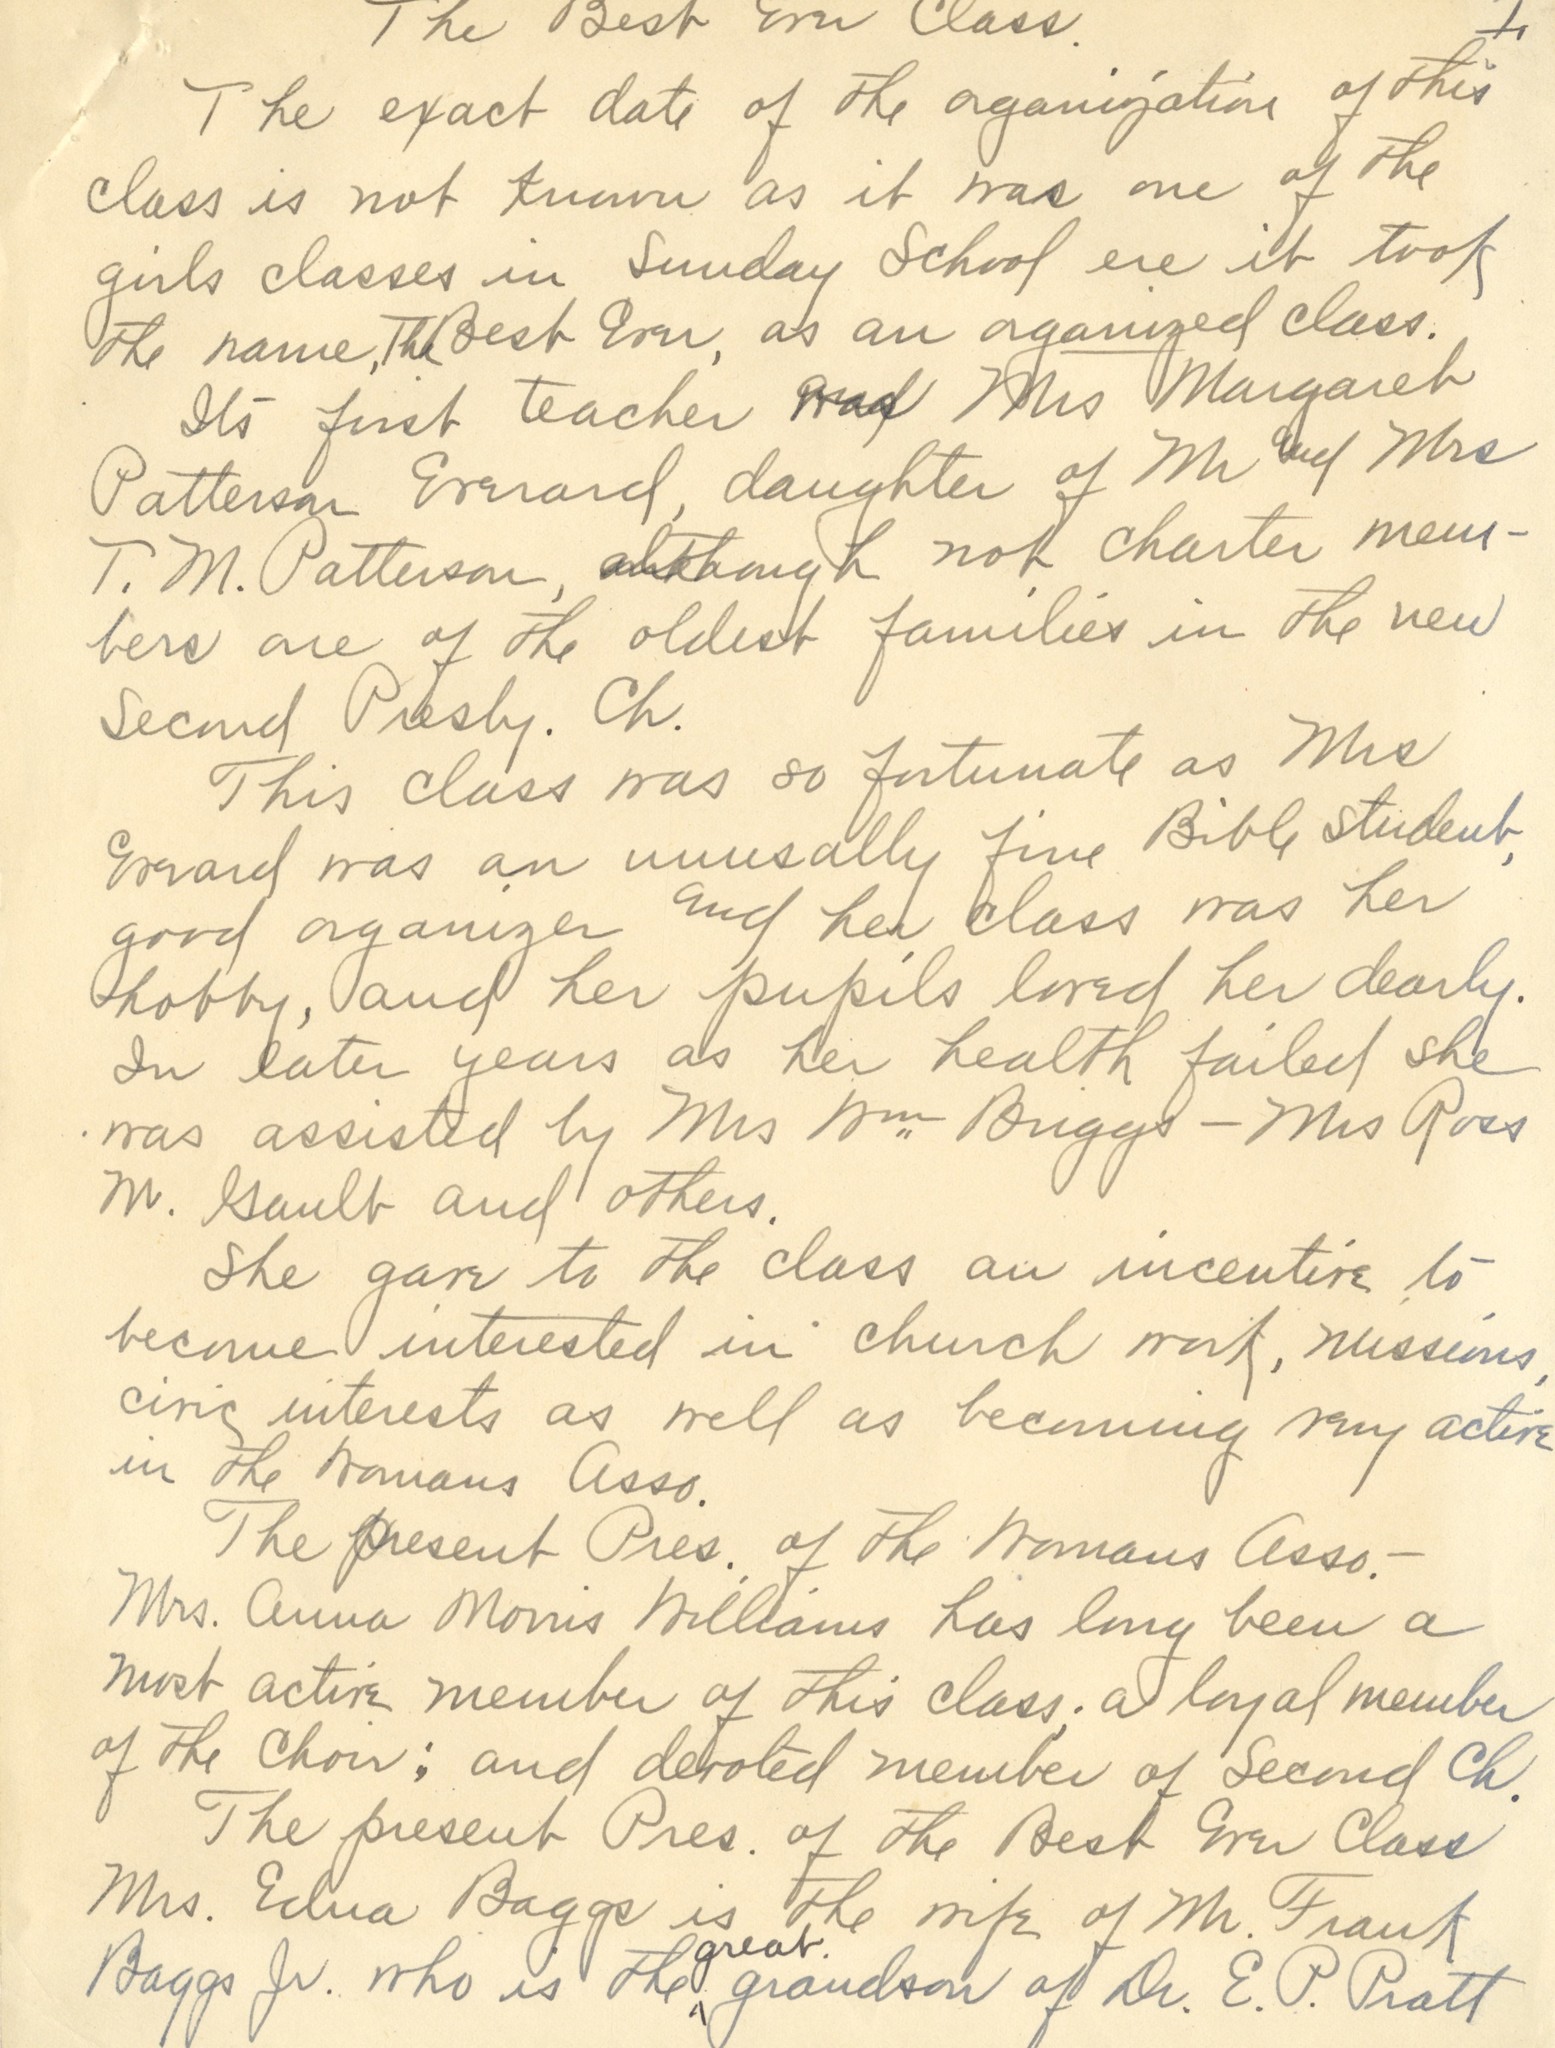 The Best Ever Class.
1.
The exact date of the organization of this
class is not known as it was one of the
girls classes in Sunday School ere it took
the name, The Best Ever, as an organized class.
Its first teacher was Mrs Margaret
Patterson Everard, daughter of Mr and Mrs
T. M. Patterson, although not charter mem-
bers one of the oldest families in the new
Second Presby. Ch.
This class was so fortunate as Mrs
Everard was an unusally fine Bible student,
good organizer and her class was her
hobby, and her pupils loved her dearly.
In later years as her health failed she
was assisted by Mrs Wm Briggs – Mrs Ross
M. Gault and others.
She gave to the class an incentive to
become interested in church work, missions,
civic interests as well as becoming very active
in the Womans Asso.
The present Pres. of the Womans Asso. –
Mrs. Anna Morris Williams has long been a
most active member of this class; a loyal member
of the Choir; and devoted member of Second Ch.
The present Pres. of the Best Ever Class
Mrs. Edna Baggs is the wife of Mr. Frank
Baggs Jr. who is the great grandson of Dr. E. P. Pratt